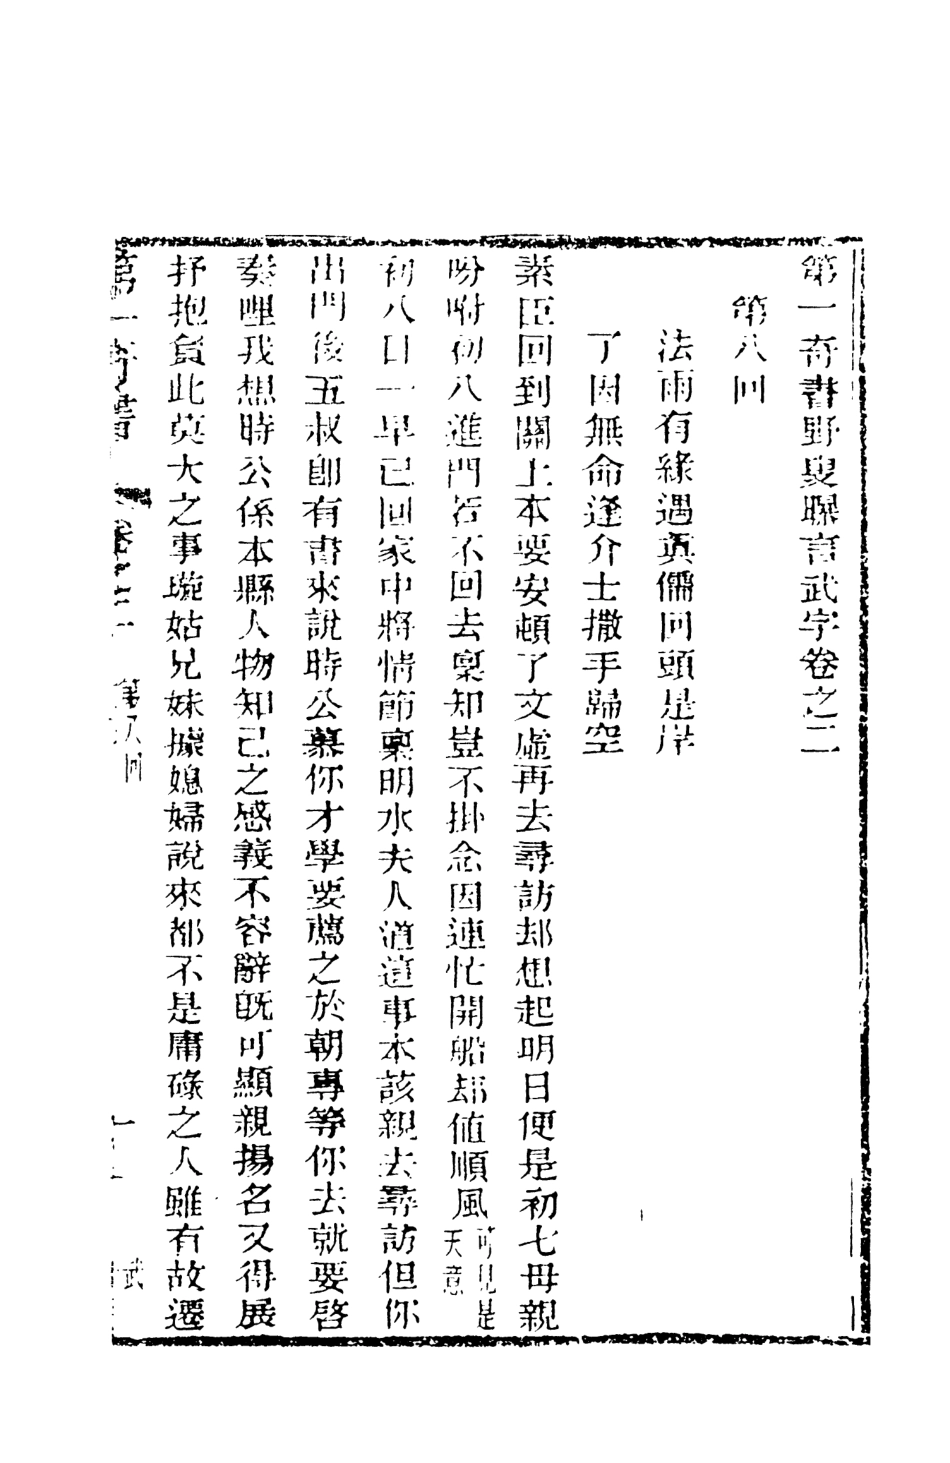 第一奇書野叟曝言武字卷之二
第八回
法雨有緣遇眞儒回頭是岸
了因無命逢介士撒手歸空
素臣回到關上本要安頓了文虛再去尋訪却想起明日便是初七母親
吩咐初八進門若不回去稟知豈不掛念因連忙開船却値順風可見是天意
初八日一早已回家中將情節稟明水夫人道這事本該親去尋訪但你
出門後五叔卽有書來說時公慕你才學要薦之於朝專等你去就要啓
奏哩我想時公係本縣人物知己之感義不容辭旣可顯親揚名又得展
抒抱負此莫大之事璇姑兄妹據媳婦說來都不是庸碌之人雖有故遷
第一奇書 卷之二 第八回 一 武